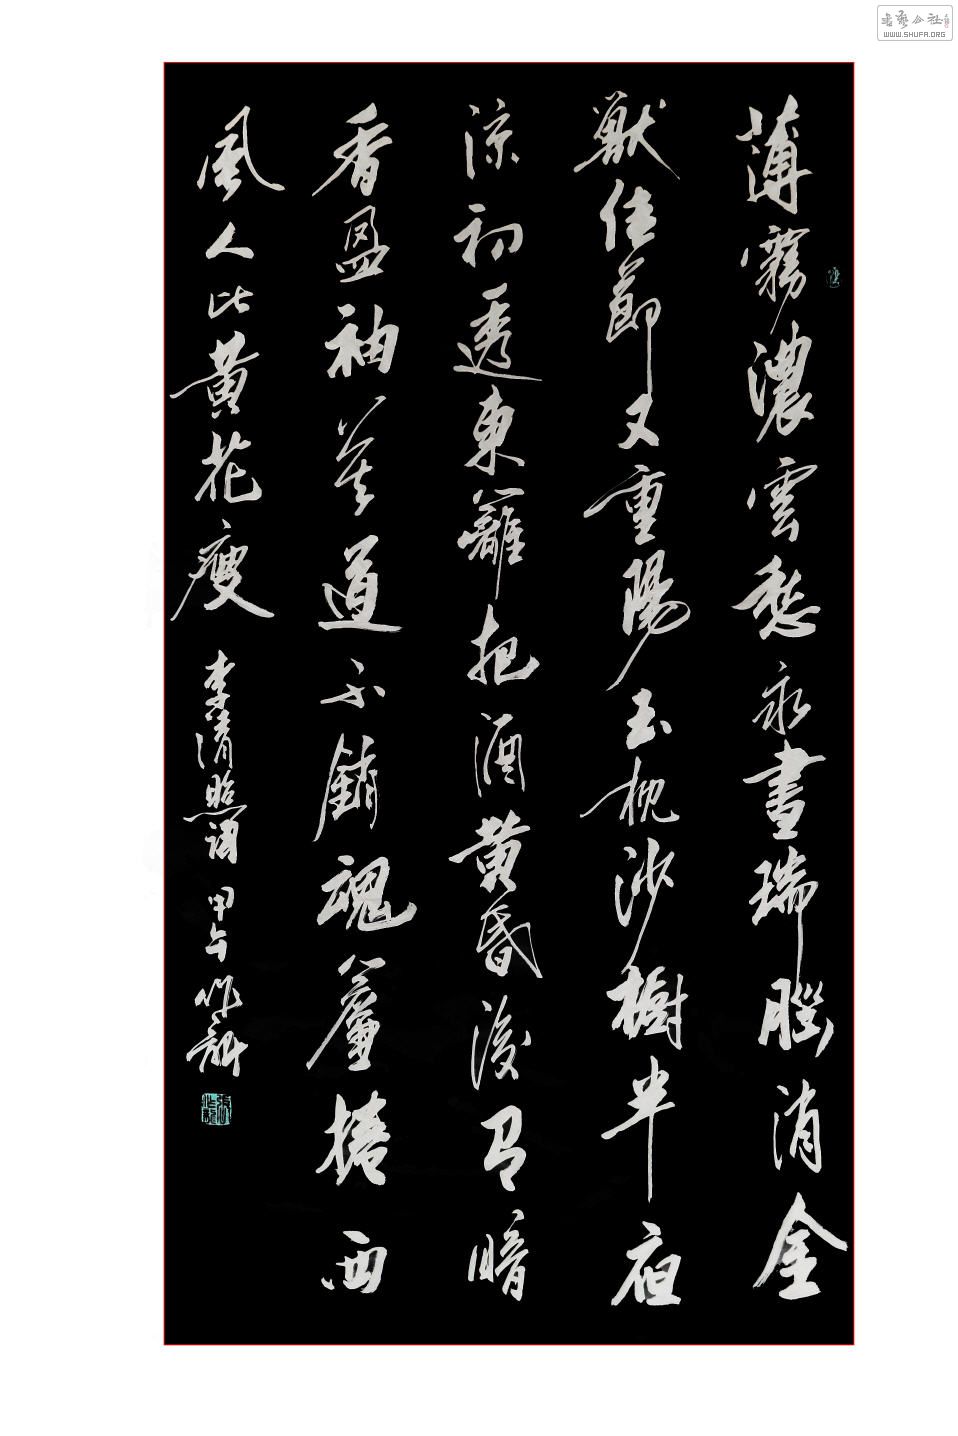 薄霧濃雲愁永晝瑞腦消金
獸佳節又重陽玉枕沙樹半夜
涼初透東籬把酒黃昏後有暗
香盈袖莫道不銷魂簾捲西
風人比黃花瘦 李清照詞 甲午作
书艺公社
WWW.SHUFA.ORG